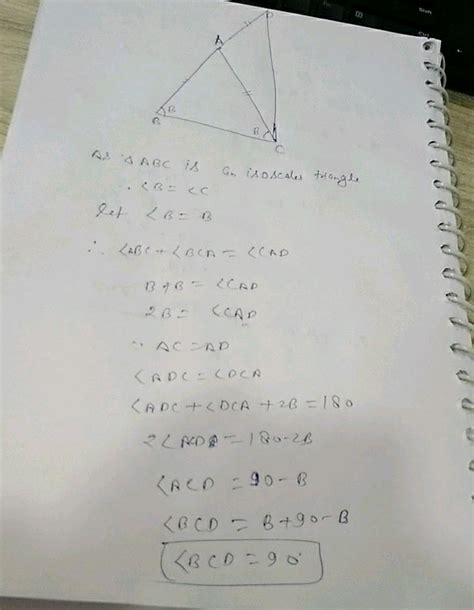 D
A
B
B
B
C
As △ABC is an isoscales triangle
∴ ∠B = ∠C
let ∠B = B
∴ ∠ABC + ∠BCA = ∠CAD
B + B = ∠CAD
2B = ∠CAD
∵ AC = AD
∠ADC = ∠DCA
∠ADC + ∠DCA + 2B = 180
= 180 - 2B
∠ACD = 90 - B
∠BCD = B + 90 - B
∠BCD = 90°